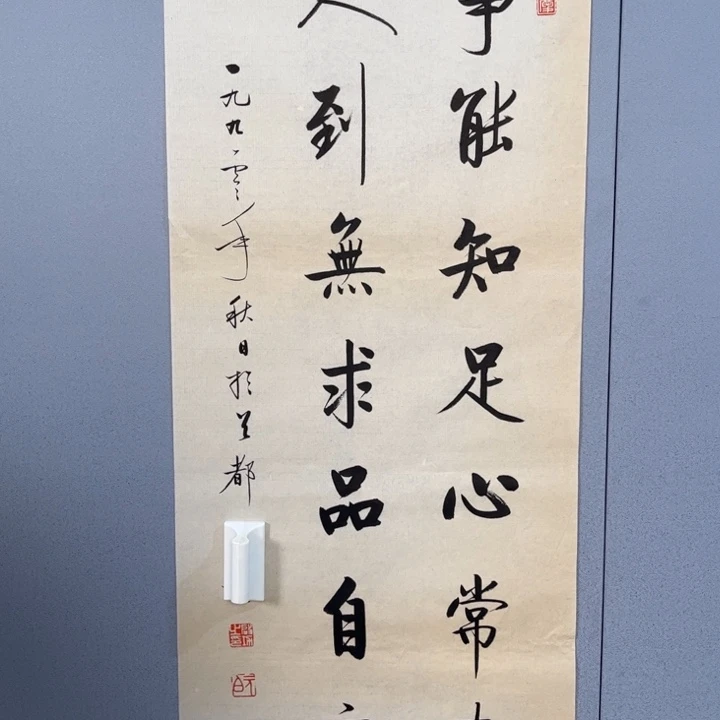 事能知足心常
人到無求品自
一九九零年秋日於都